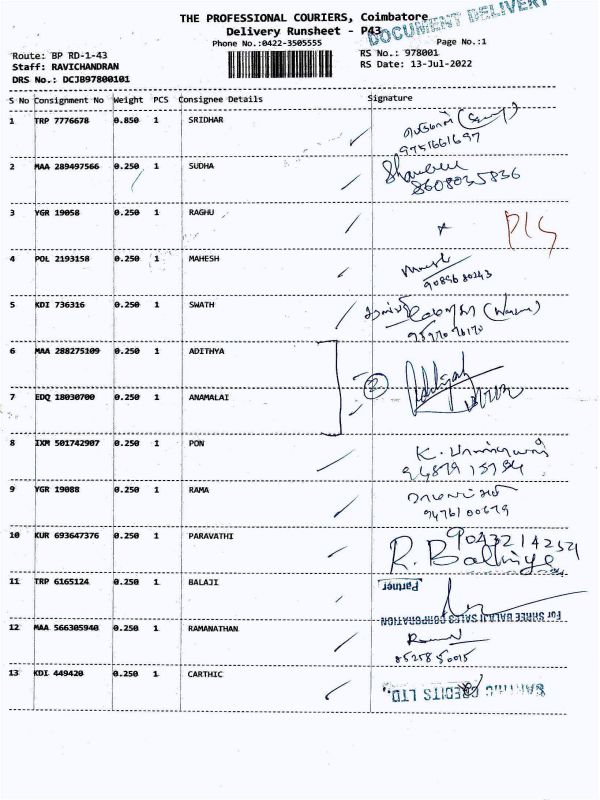 THE PROFESSIONAL COURIERS, Coimbatore
DOCUMENT DELIVERY
Delivery Runsheet - P43
Phone No.:0422-3505555
Page No.:1
Route: BP RD-1-43
RS No.: 978001
Staff: RAVICHANDRAN
RS Date: 13-Jul-2022
DRS No.: DCJB97800101
S No Consignment No Weight PCS Consignee Details Signature
1 TRP 7776678 0.850 1 SRIDHAR
9751661697
2 MAA 289497566 0.250 1 SUDHA
8608035836
3 YGR 19058 0.250 1 RAGHU
4 POL 2193158 0.250 1 MAHESH
5 KDI 736316 0.250 1 SWATH
6 MAA 288275109 0.250 1 ADITHYA
2
7 EDQ 18030700 0.250 1 ANAMALAI
8 IXM 501742907 0.250 1 PON
9 YGR 19088 0.250 1 RAMA
10 KUR 693647376 0.250 1 PARAVATHI
R.
11 TRP 6165124 0.250 1 BALAJI
Partner
For SHREE BALAJI SALES CORPORATION
12 MAA 566305940 0.250 1 RAMANATHAN
8525850015
13 KDI 449420 0.250 1 CARTHIC
CREDITS LTD.